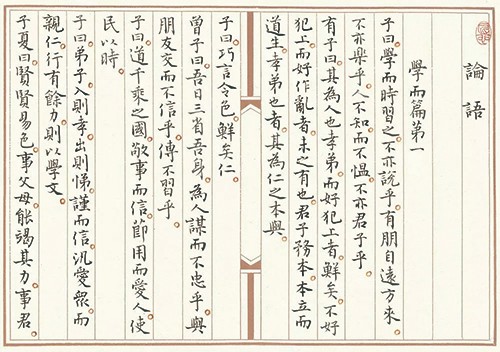 論語
學而篇第一
子曰學而時習之。不亦說乎。有朋自遠方來。
不亦樂乎。人不知而不慍。不亦君子乎。
有子曰其為人也孝弟。而好犯上者鮮矣。不好
犯上。而好作亂者。未之有也。君子務本。本立而
道生。孝弟也者。其為仁之本與。
子曰巧言令色。鮮矣仁。
曾子曰吾日三省吾身。為人謀而不忠乎。與
朋友交而不信乎。傳不習乎。
子曰道千乘之國。敬事而信。節用而愛人。使
民以時。
子曰弟子入則孝。出則悌。謹而信。汎愛眾。而
親仁。行有餘力。則以學文。
子夏曰賢賢易色。事父母能竭其力。事君